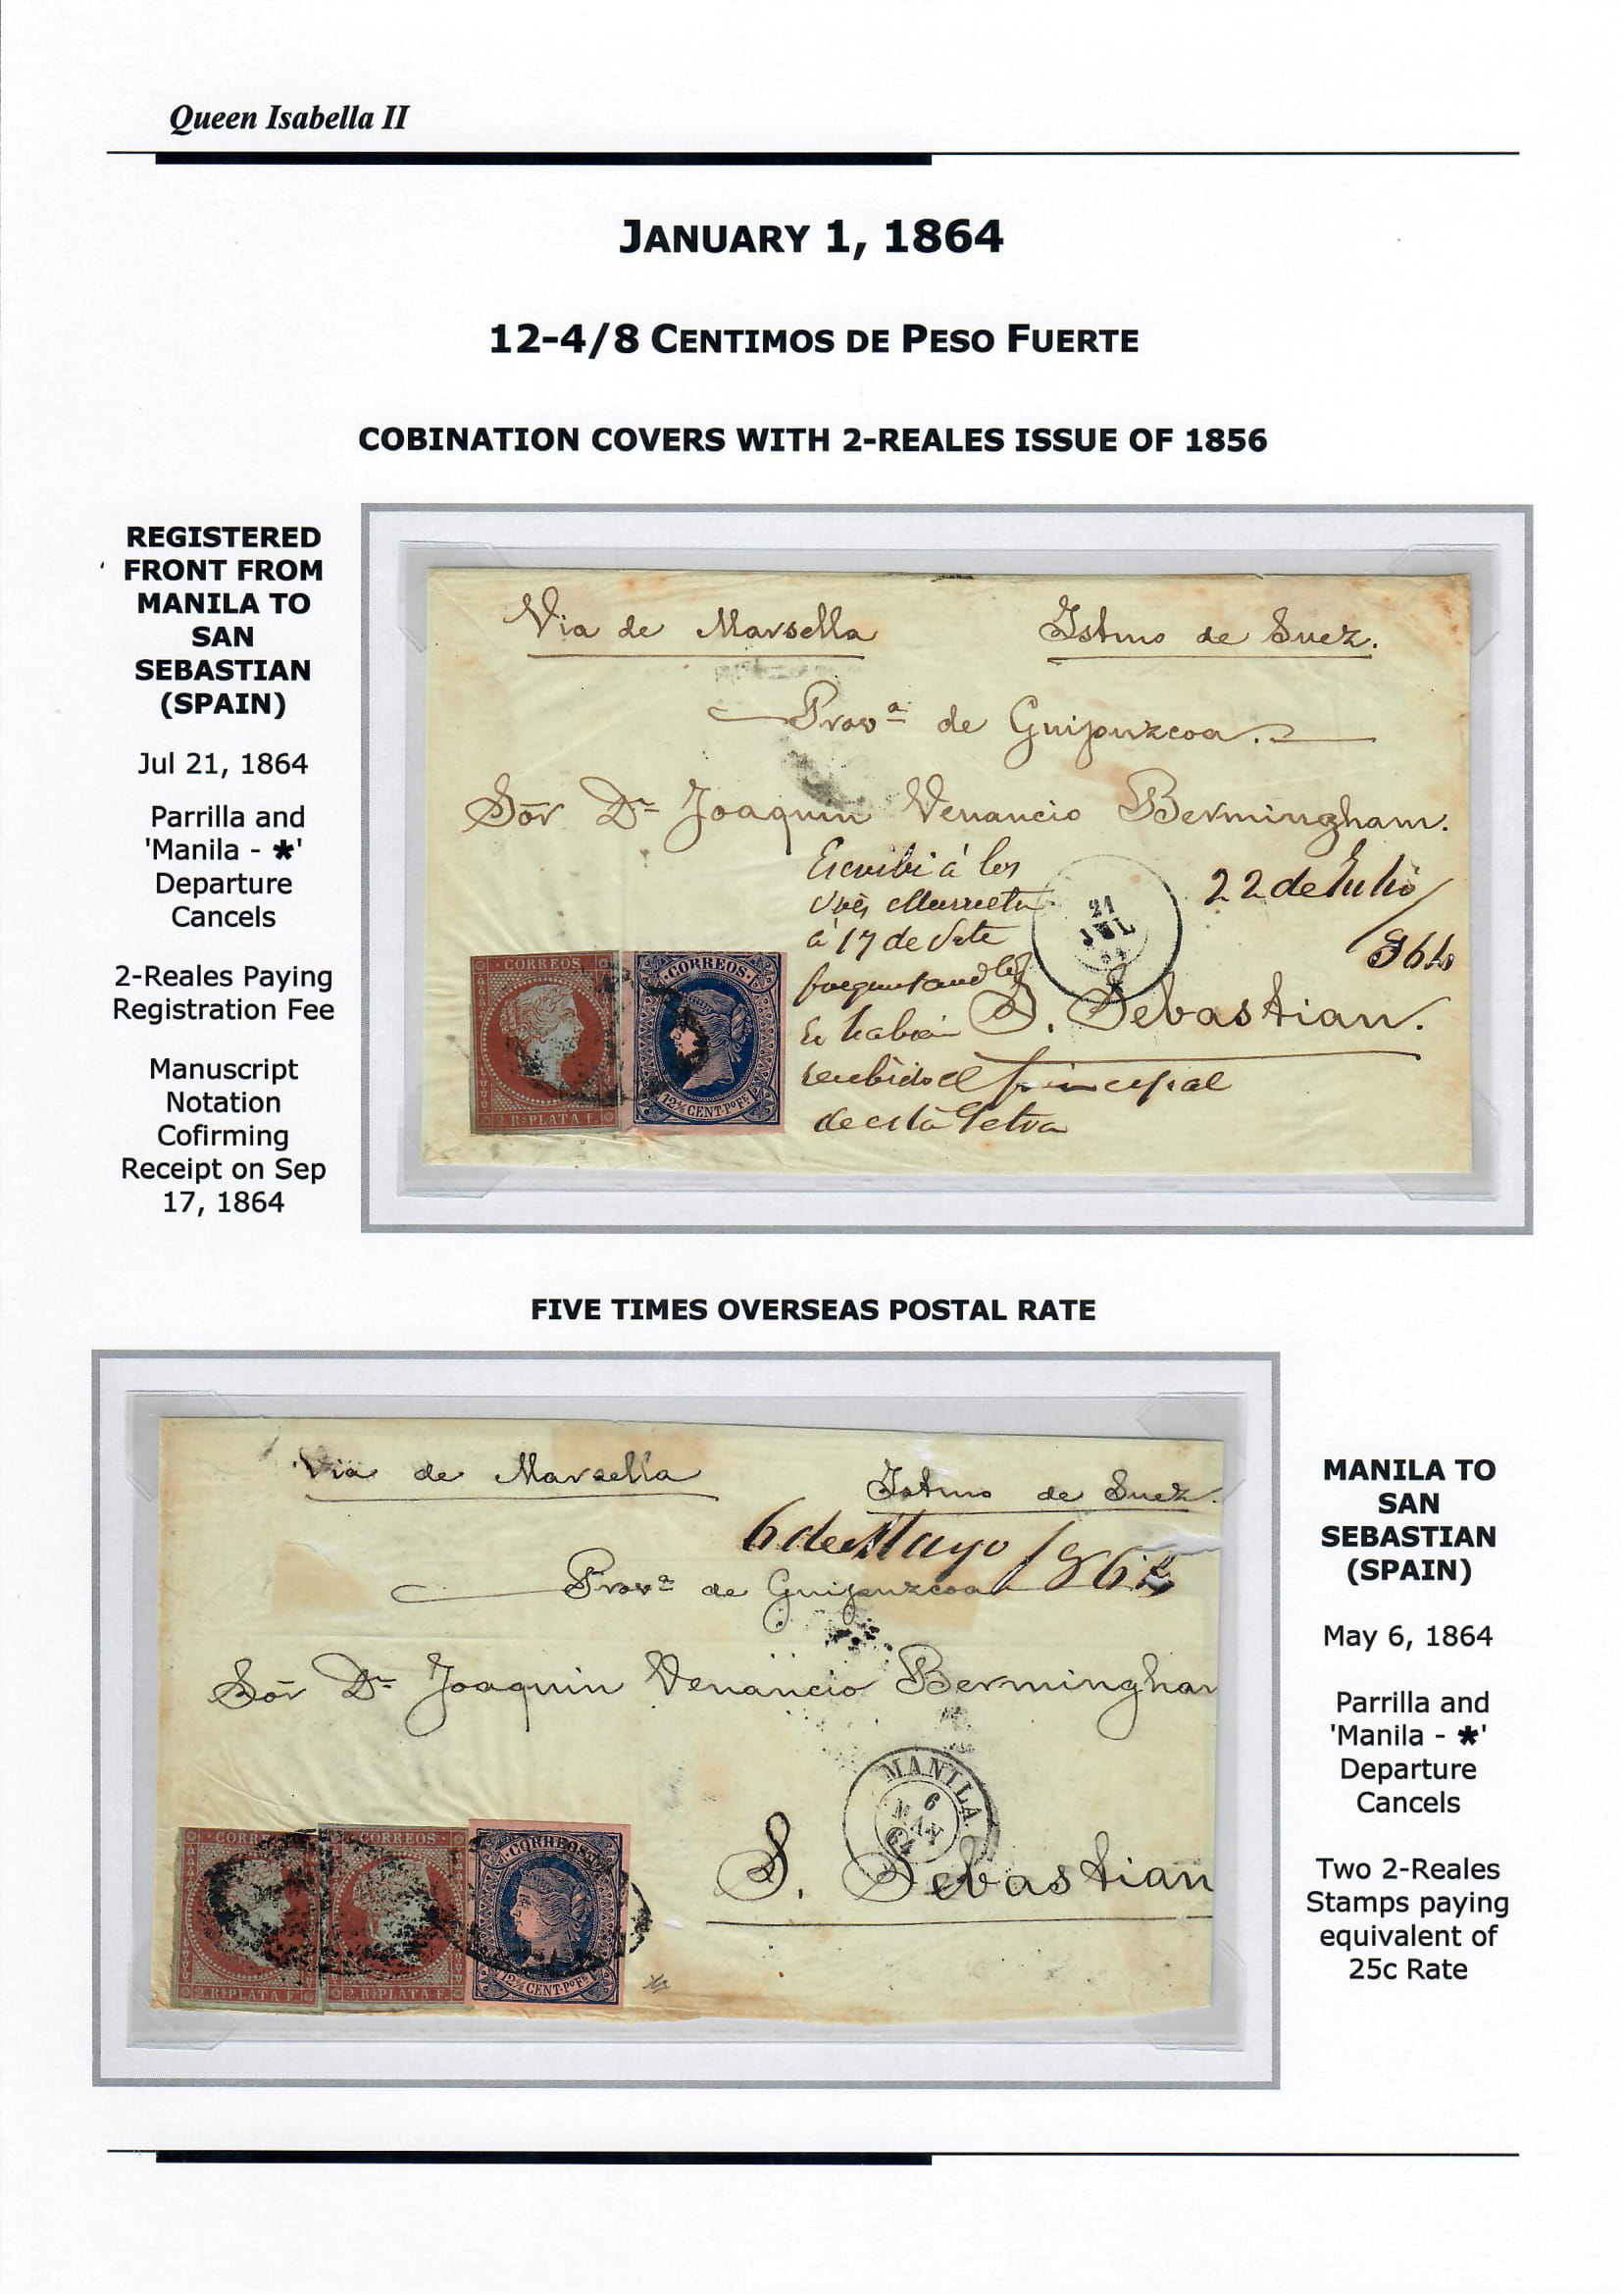 Queen Isabella II
JANUARY 1, 1864
12-4/8 CENTIMOS DE PESO FUERTE
COBINATION COVERS WITH 2-REALES ISSUE OF 1856
REGISTERED
FRONT FROM
MANILA TO
SAN
SEBASTIAN
(SPAIN)
Jul 21, 1864
Parrilla and
'Manila - *'
Departure
Cancels
2-Reales Paying
Registration Fee
Manuscript
Notation
Cofirming
Receipt on Sep
17, 1864
Via de Marsella
Istmo de Suez.
Provª de Guipuzcoa.
Sōr Dn Joaquin Venancio Bermingham.
Escribi á los
á 17 de
22 de Julio
864
21
JUL
S. Sebastian.
recibido el principal
de esta Letra
CORREOS
2 Rs PLATA F.
CORREOS
12 4/8 CENT. Po Fe
FIVE TIMES OVERSEAS POSTAL RATE
Via de Marsella
Istmo de Suez.
6 de Mayo / 864
Provª de Guipuzcoa
Sōr Dn Joaquin Venancio Bermingham
MANILA
6
MAY
64
S. Sebastian
CORR
2 Rs PLATA F.
CORREOS
2 Rs PLATA F.
CORREOS
12 4/8 CENT. Po Fe
MANILA TO
SAN
SEBASTIAN
(SPAIN)
May 6, 1864
Parrilla and
'Manila - *'
Departure
Cancels
Two 2-Reales
Stamps paying
equivalent of
25c Rate